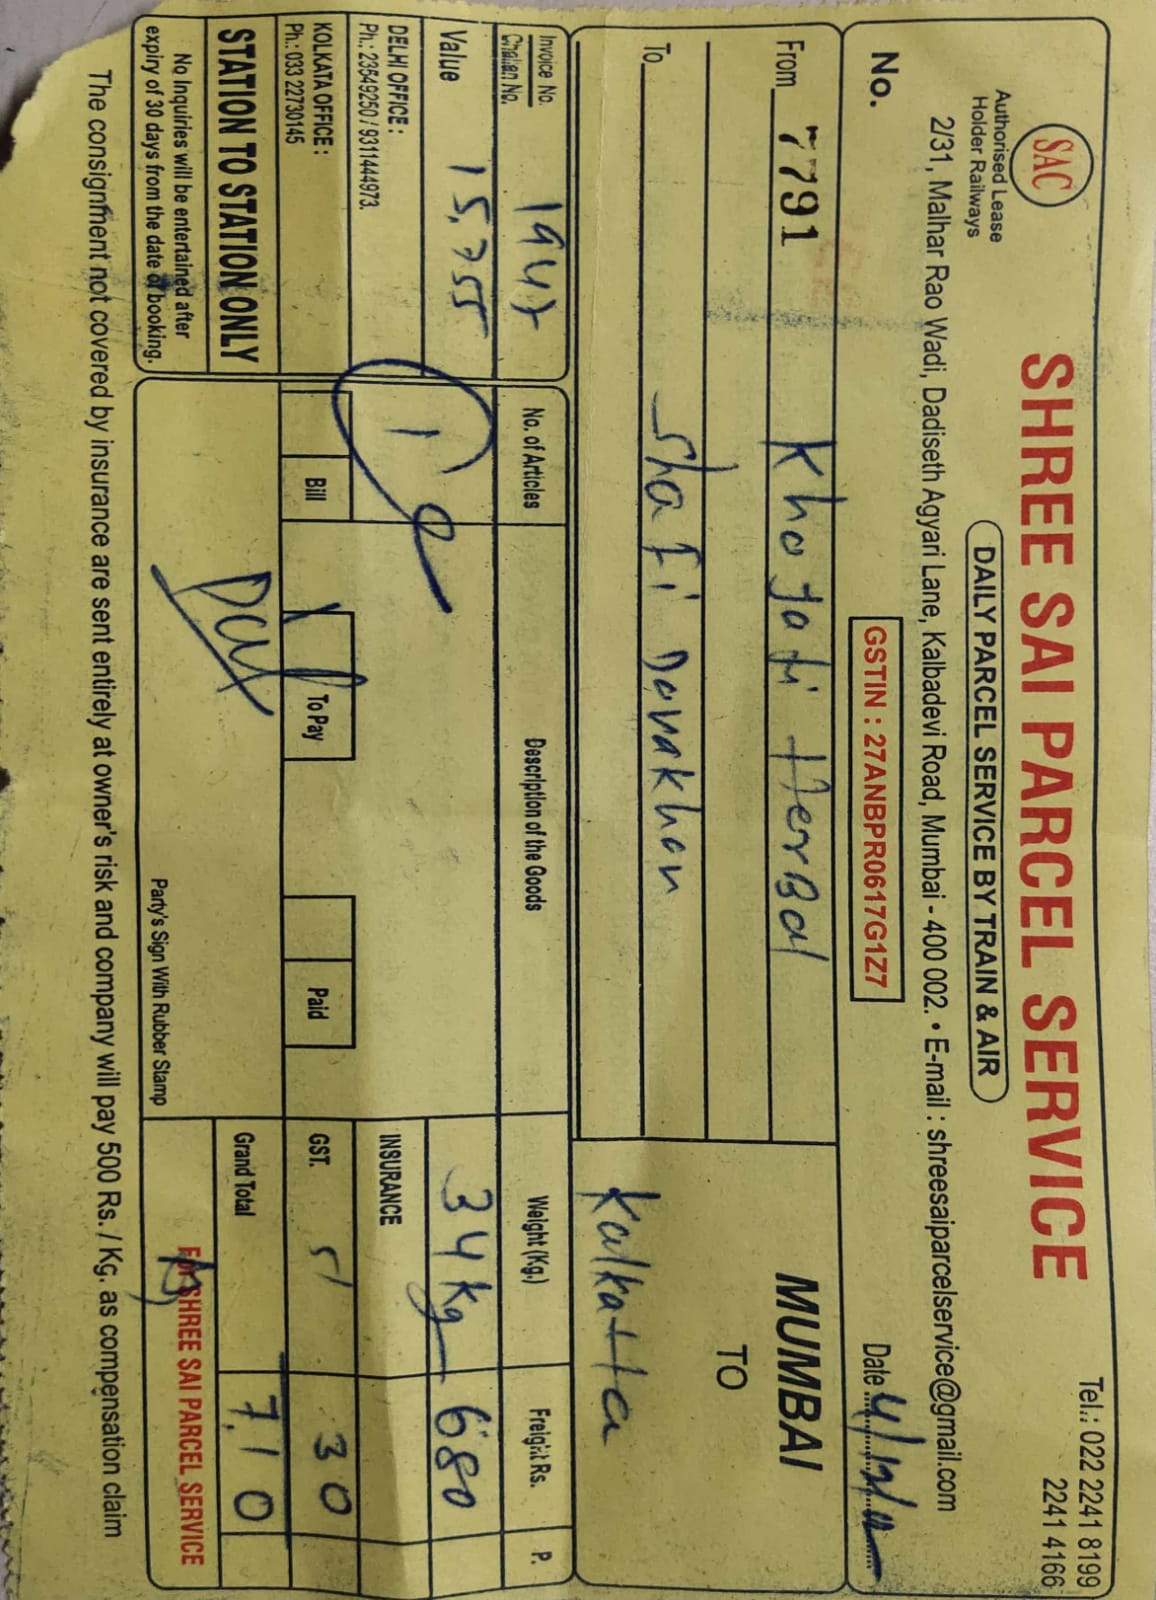 SAC
Authorised Lease
Holder Railways
SHREE SAI PARCEL SERVICE
Tel.: 022 2241 8199
2241 4166
DAILY PARCEL SERVICE BY TRAIN & AIR
2/31, Malhar Rao Wadi, Dadiseth Agyari Lane, Kalbadevi Road, Mumbai - 400 002. • E-mail : shreesaiparcelservice@gmail.com
No.
GSTIN : 27ANBPR0617G1Z7
Date 4/12/
From 7791 Khojati Herbal
MUMBAI
TO
To Shafi Davakhan
Kalkatta
Invoice No.
Challan No.
Value 15,755
DELHI OFFICE :
Ph.: 23549250 / 9311444973.
KOLKATA OFFICE :
Ph.: 033 22730145
STATION TO STATION ONLY
No Inquiries will be entertained after
expiry of 30 days from the date of booking.
No. of Articles Description of the Goods Weight (Kg.) Freight Rs. P.
1 34 Kg 680
INSURANCE
Bill To Pay Paid GST. 5/ 30
Grand Total 710
Party's Sign With Rubber Stamp
For SHREE SAI PARCEL SERVICE
The consignment not covered by insurance are sent entirely at owner's risk and company will pay 500 Rs. / Kg. as compensation claim